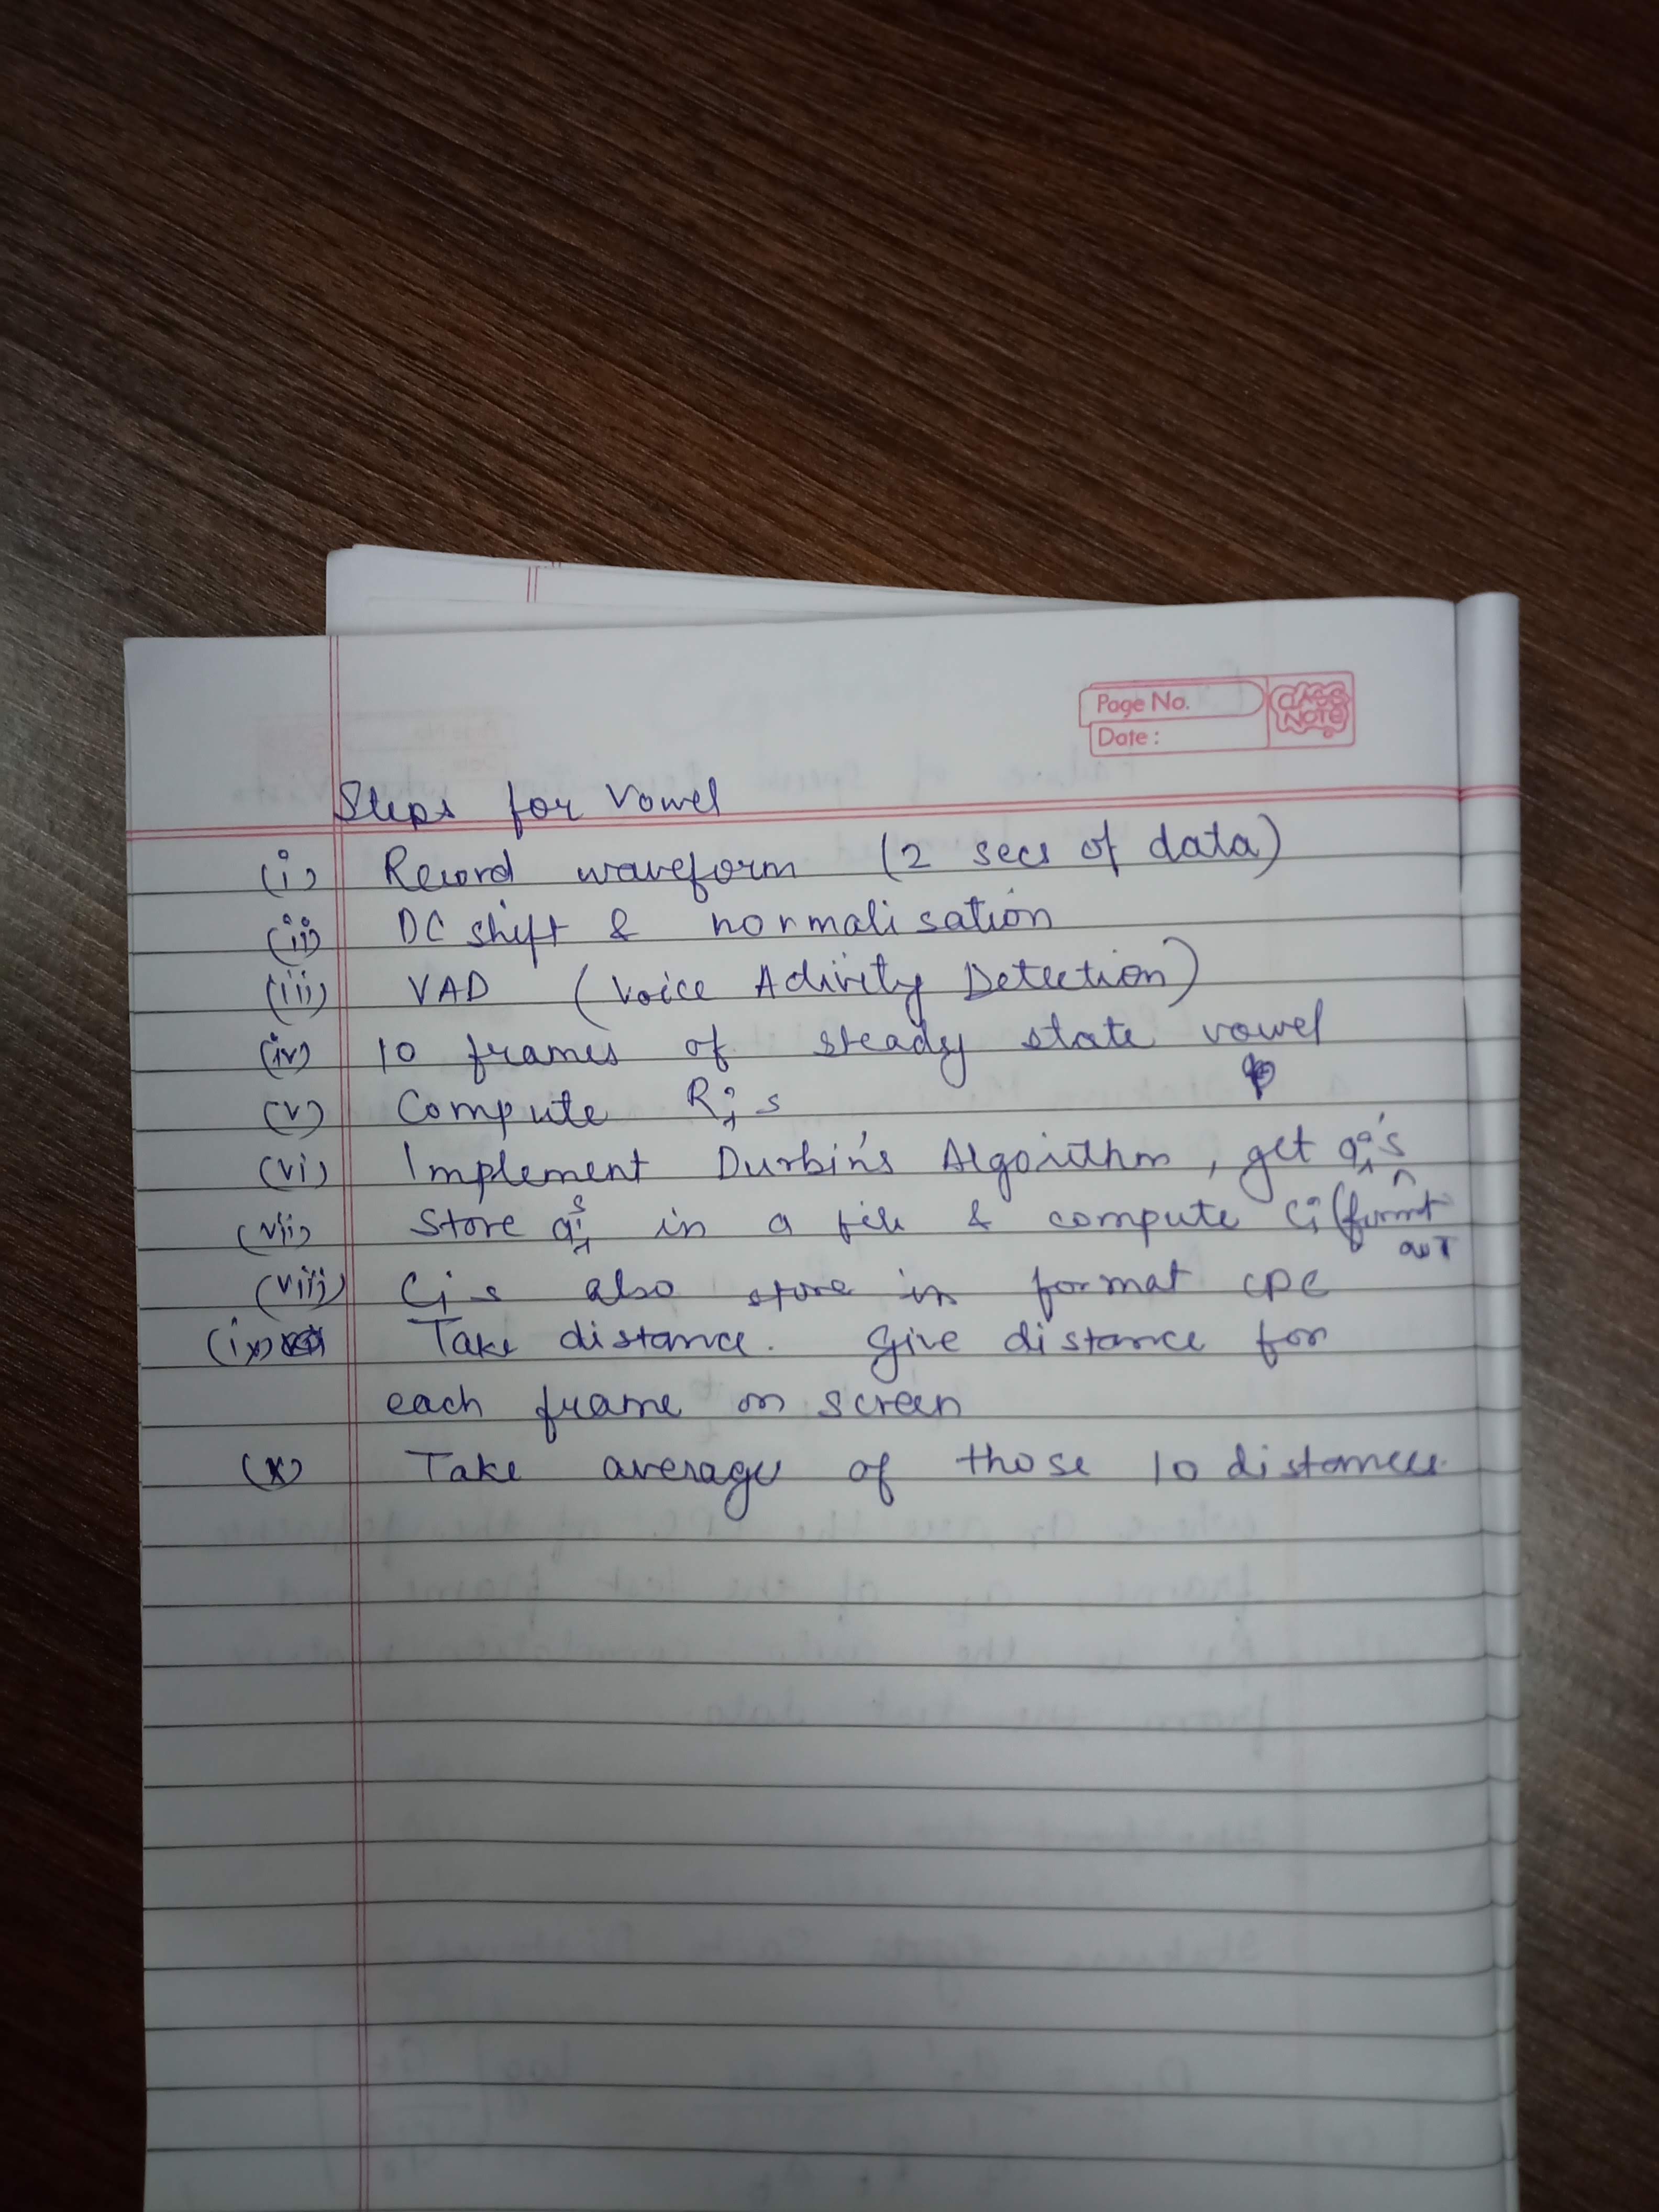 Page No.
Date :
CLASS NOTE
Steps for Vowel
(i) Record waveform (2 secs of data)
(ii) DC shift & normalisation
(iii) VAD (Voice Activity Detection)
(iv) 10 frames of steady state vowel
(v) Compute Ri's
(vi) Implement Durbin's Algorithm, get ai's
(vii) Store ai's in a file & compute Ci (format
(viii) Ci s also store in format CPC
(ix) Take distance. Give distance for
each frame on screen
(x) Take average of those 10 distances.